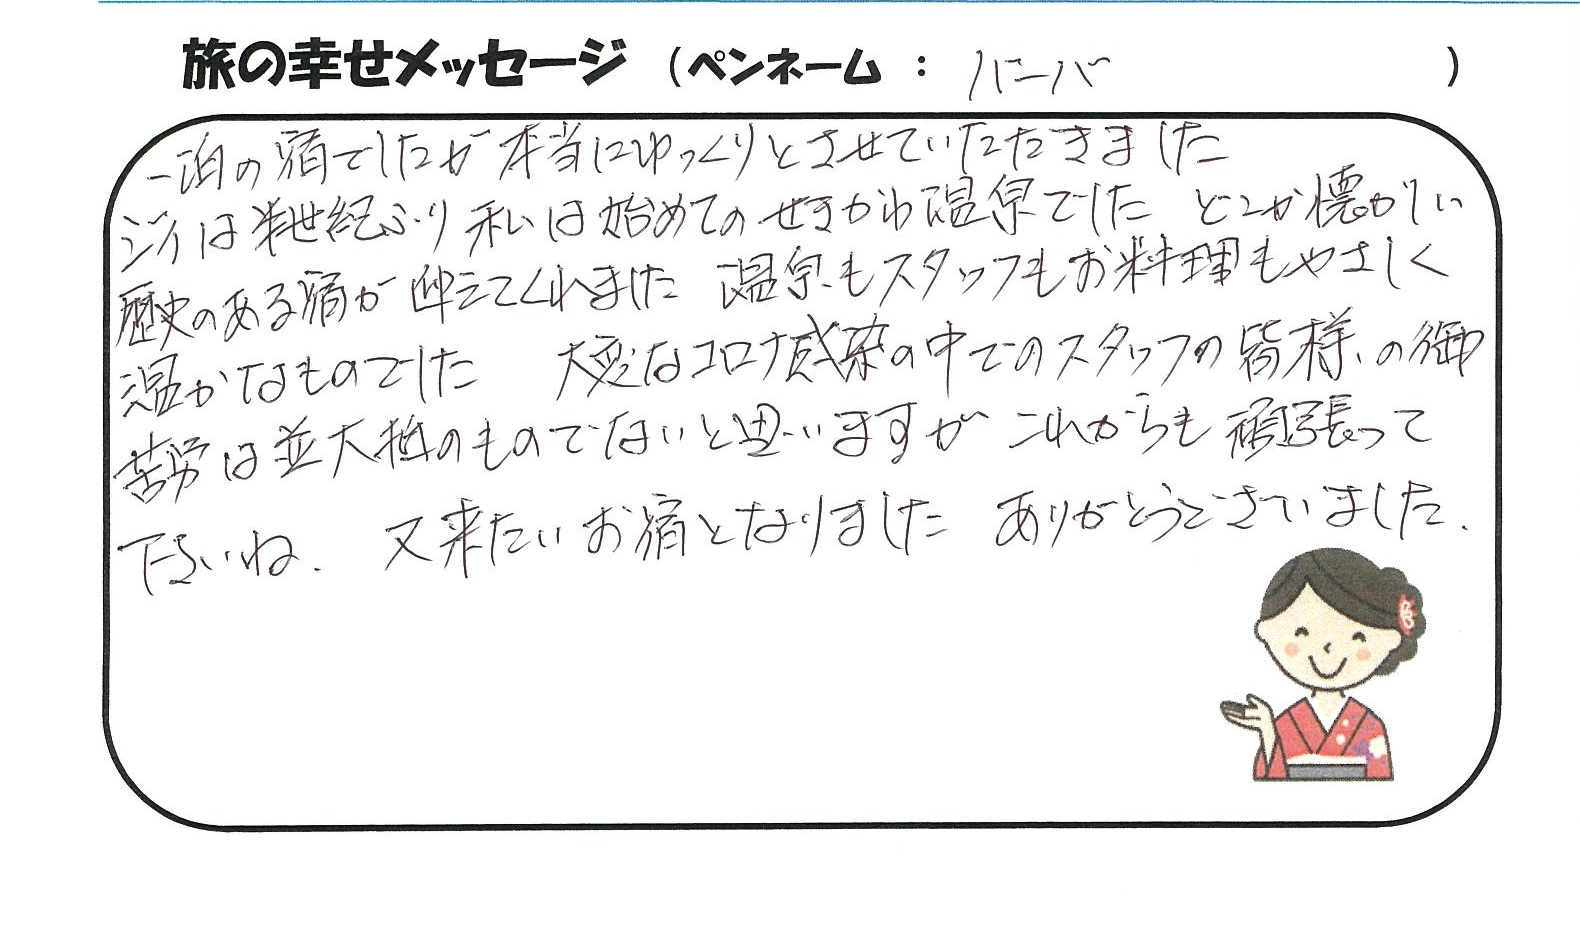 旅の幸せメッセージ （ペンネーム ： バーバ ）
一泊の宿でしたが 本当にゆっくりとさせていただきました
ジイは半世紀ぶり 私は始めてのせきがね温泉でした どこか懐かしい
歴史のある宿が 迎えてくれました 温泉もスタッフもお料理もやさしく
温かなものでした 大変なコロナ感染の中でのスタッフの皆様の御
苦労は並大抵のものでないと思いますが これからも頑張って
下さいね． 又来たいお宿となりました ありがとうございました．